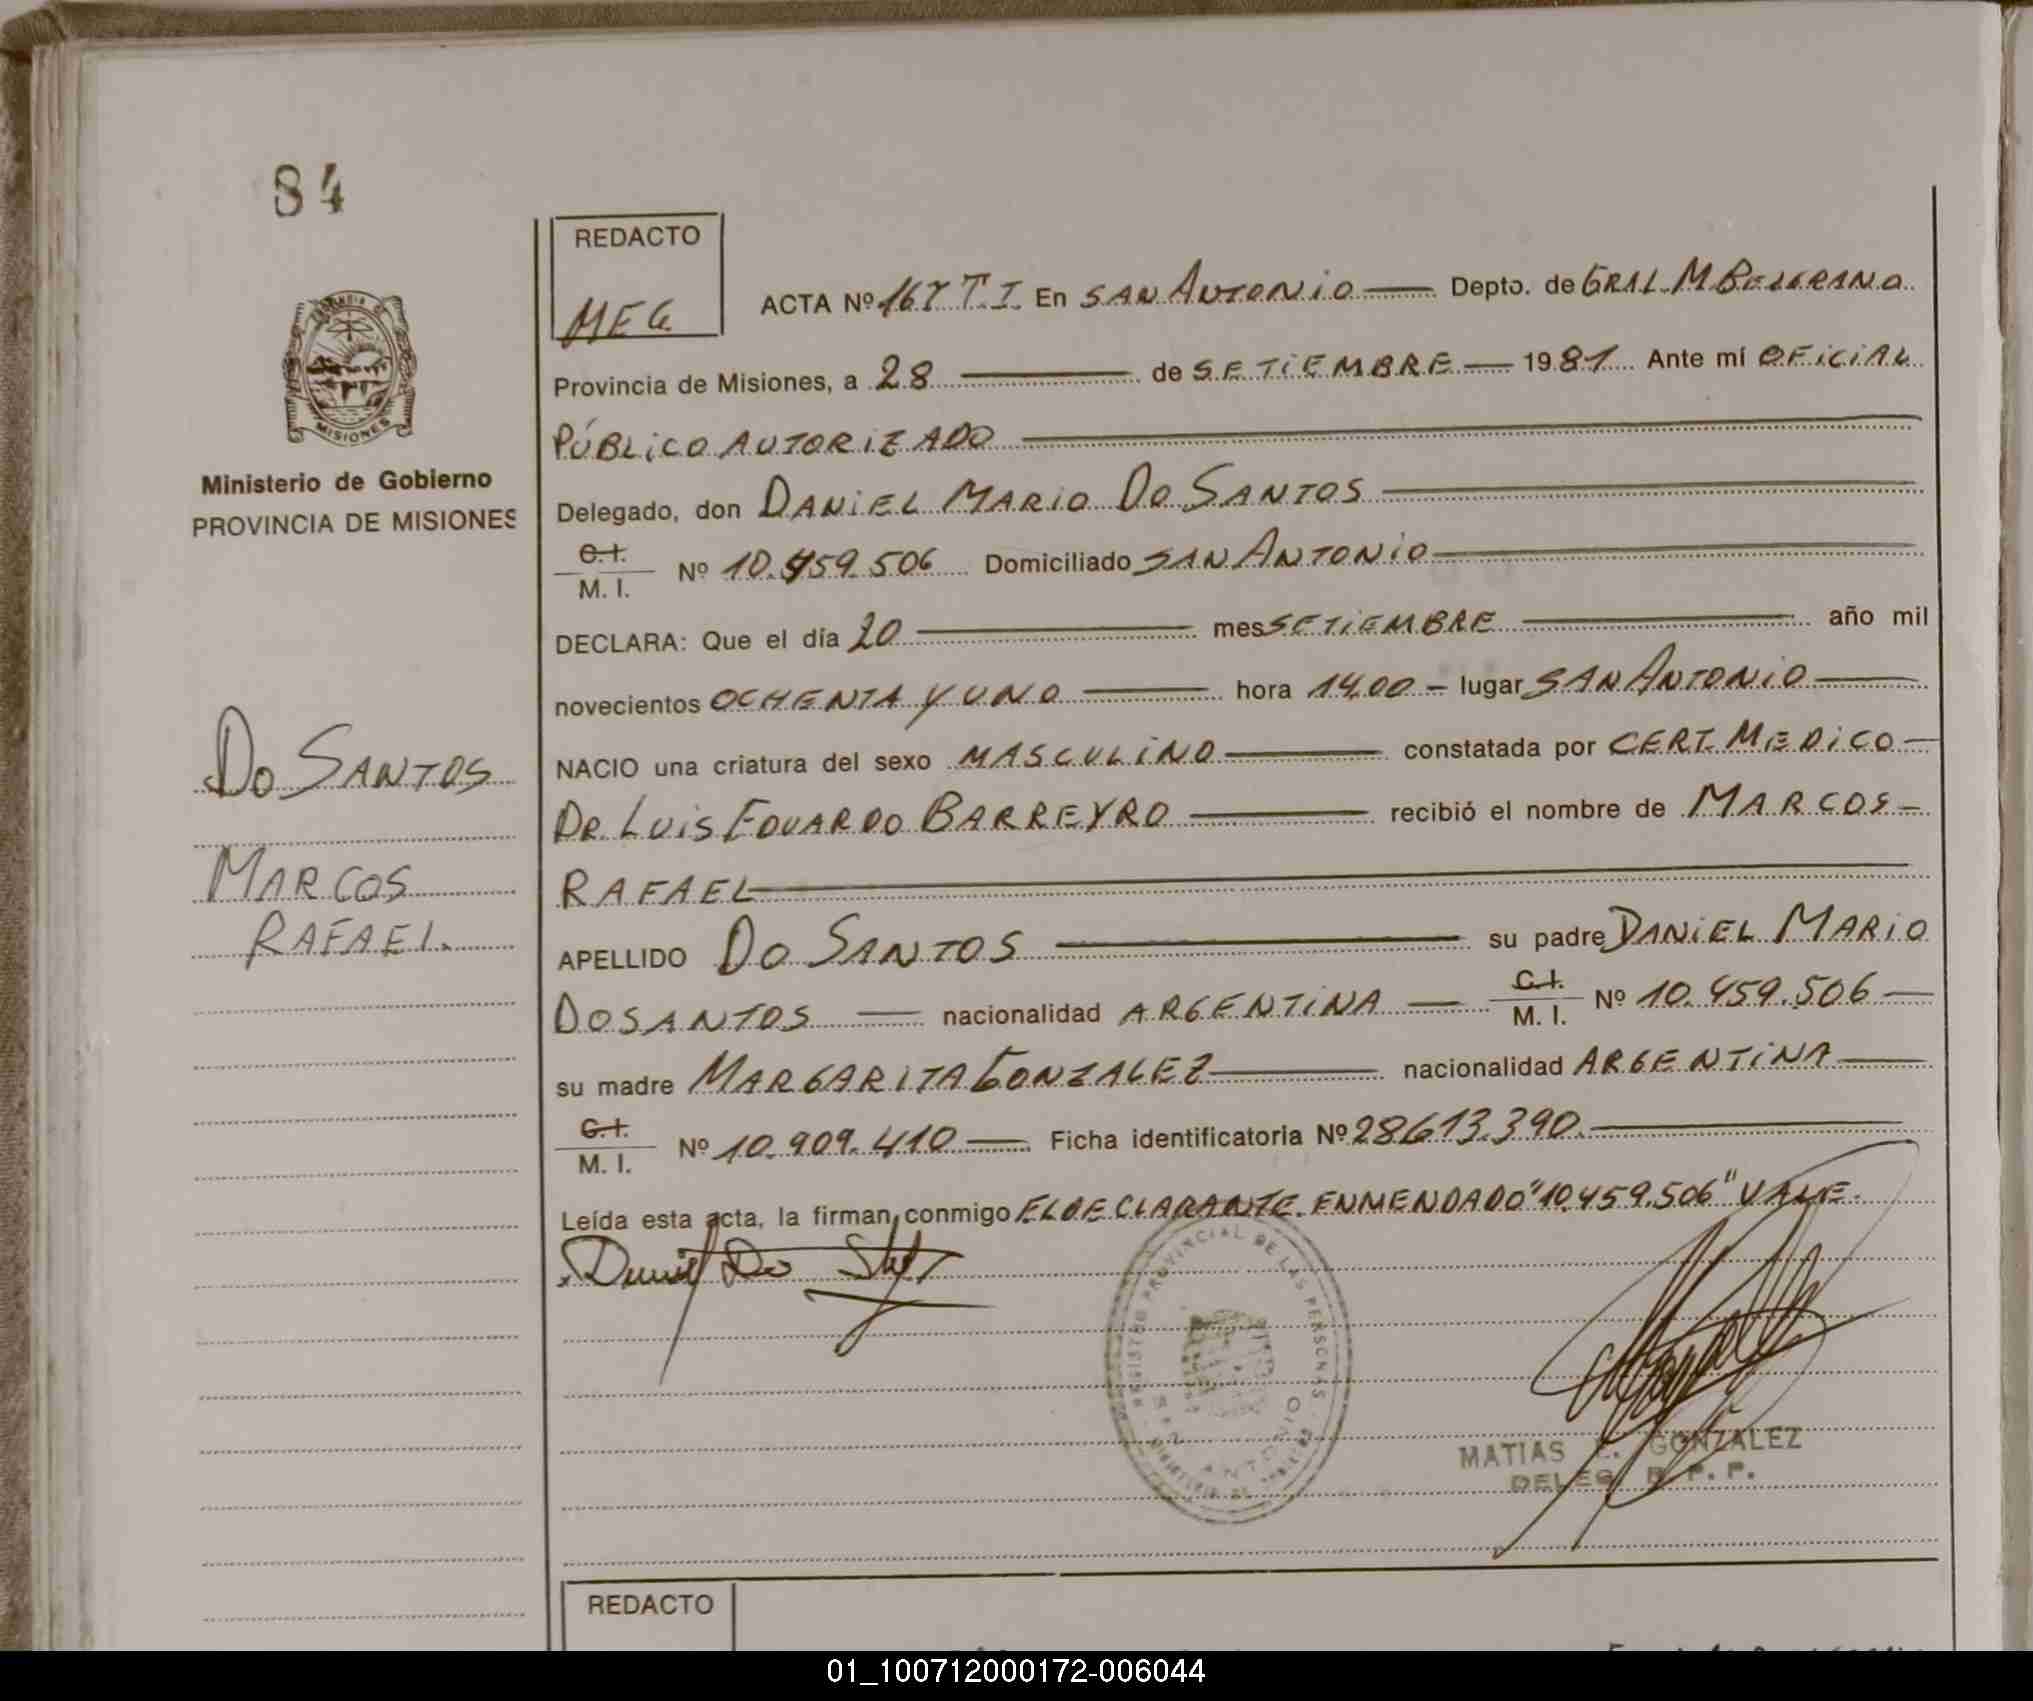 84
REDACTO
MEG
ACTA Nº 167 T.I. En SAN ANTONIO Depto. de GRAL. M BELGRANO
Provincia de Misiones, a 28 de SETIEMBRE 1981 Ante mí OFICIAL
PÚBLICO AUTORIZADO
Ministerio de Gobierno
PROVINCIA DE MISIONES
MISIONES
Delegado, don DANIEL MARIO DO SANTOS
C.I. M. I. Nº 10.459.506 Domiciliado SAN ANTONIO
DECLARA: Que el día 20 mes SETIEMBRE año mil
novecientos OCHENTA Y UNO hora 14,00 - lugar SAN ANTONIO
NACIO una criatura del sexo MASCULINO constatada por CERT. MEDICO
DR. LUIS EDUARDO BARREYRO recibió el nombre de MARCOS
RAFAEL
DO SANTOS
MARCOS
RAFAEL.
APELLIDO DO SANTOS su padre DANIEL MARIO
DOSANTOS nacionalidad ARGENTINA C.I. M. I. Nº 10.459.506
su madre MARGARITA GONZALEZ nacionalidad ARGENTINA
C.I. M. I. Nº 10.909.410 Ficha identificatoria Nº 28.613.390.
Leída esta acta, la firman conmigo EL DECLARANTE. ENMENDADO "10.459.506" VALE.
Daniel Do
REGISTRO PROVINCIAL DE LAS PERSONAS
SAN ANTONIO
MATIAS GONZALEZ
DELEG. R. P. P.
REDACTO
01_100712000172-006044